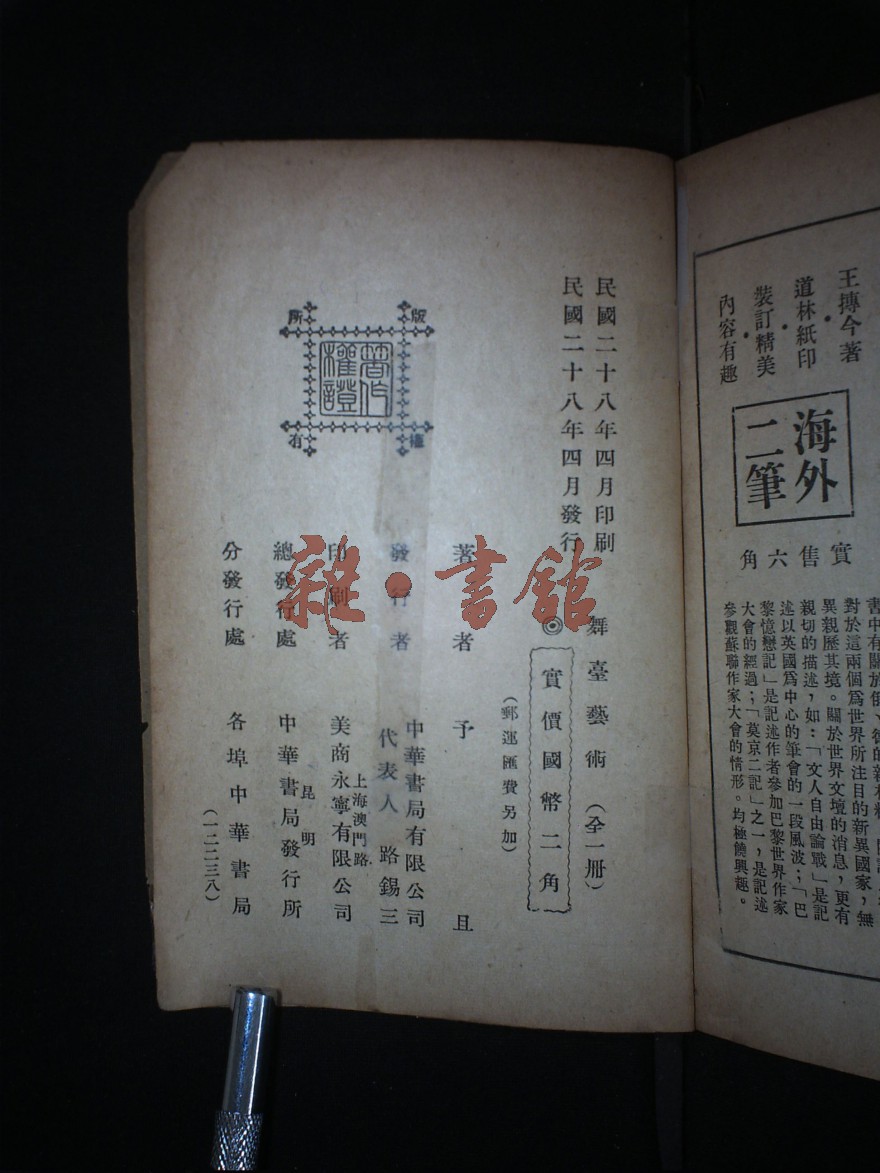 王摶今著
道林紙印
裝訂精美
內容有趣
海外
二筆
實售六角
對於這兩個爲世界所注目的新異國家,無
異親歷其境。關於世界文壇的消息,更有
親切的描述,如:「文人自由論戰」是記
述以英國爲中心的筆會的一段風波;「巴
黎憶戀記」是記述作者參加巴黎世界作家
大會的經過;「莫京二記」之一,是記述
參觀蘇聯作家大會的情形。均極饒興趣。
民國二十八年四月印刷
民國二十八年四月發行
版權所有
著作權證
舞臺藝術(全一冊)
◎實價國幣二角
(郵運匯費另加)
著者 予且
發行者 中華書局有限公司
代表人 路錫三
印刷者 上海澳門路
美商永寧有限公司
總發行處 昆明
中華書局發行所
分發行處 各埠中華書局
(一二二三八)
雜·書館